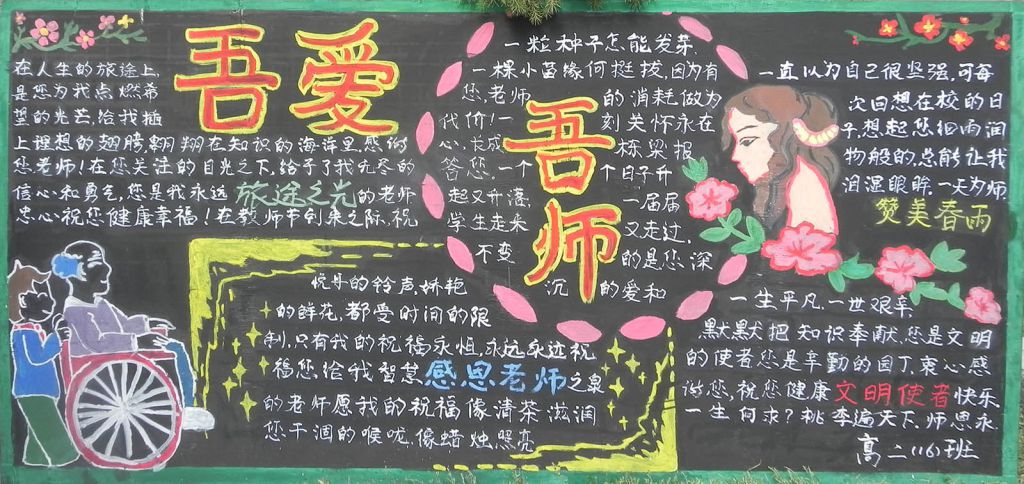 吾爱
吾师
在人生的旅途上,
是您为我点燃希
望的光芒,给我插
上理想的翅膀,翱翔在知识的海洋里,感谢
您老师!在您关注的目光之下,给予了我无尽的
信心和勇气,您是我永远旅途之光的老师
忠心祝您健康幸福!在教师节到来之际,祝
一粒种子怎能发芽,
一棵小苗缘何挺拔,因为有
您,老师的消耗做为
代价!一刻关怀永在
心,长成栋梁报
答您,一个个日子升
起又升落,一届届
学生走来又走过,
不变的是您深
沉的爱和
一直以为自己很坚强,可每
次回想在校的日
子,想起您细雨润
物般的,总能让我
泪湿眼眸,一天为师
赞美春雨
悦耳的铃声,娇艳
的鲜花,都受时间的限
制,只有我的祝福永恒,永远永远祝
福您,给我智慧感恩老师之泉
的老师愿我的祝福像清茶滋润
您干涸的喉咙,像蜡烛照亮
一生平凡,一世艰辛
默默把知识奉献,您是文明
的使者您是辛勤的园丁,衷心感
谢您,祝您健康文明使者快乐
一生何求?桃李遍天下,师恩永
高二(16)班